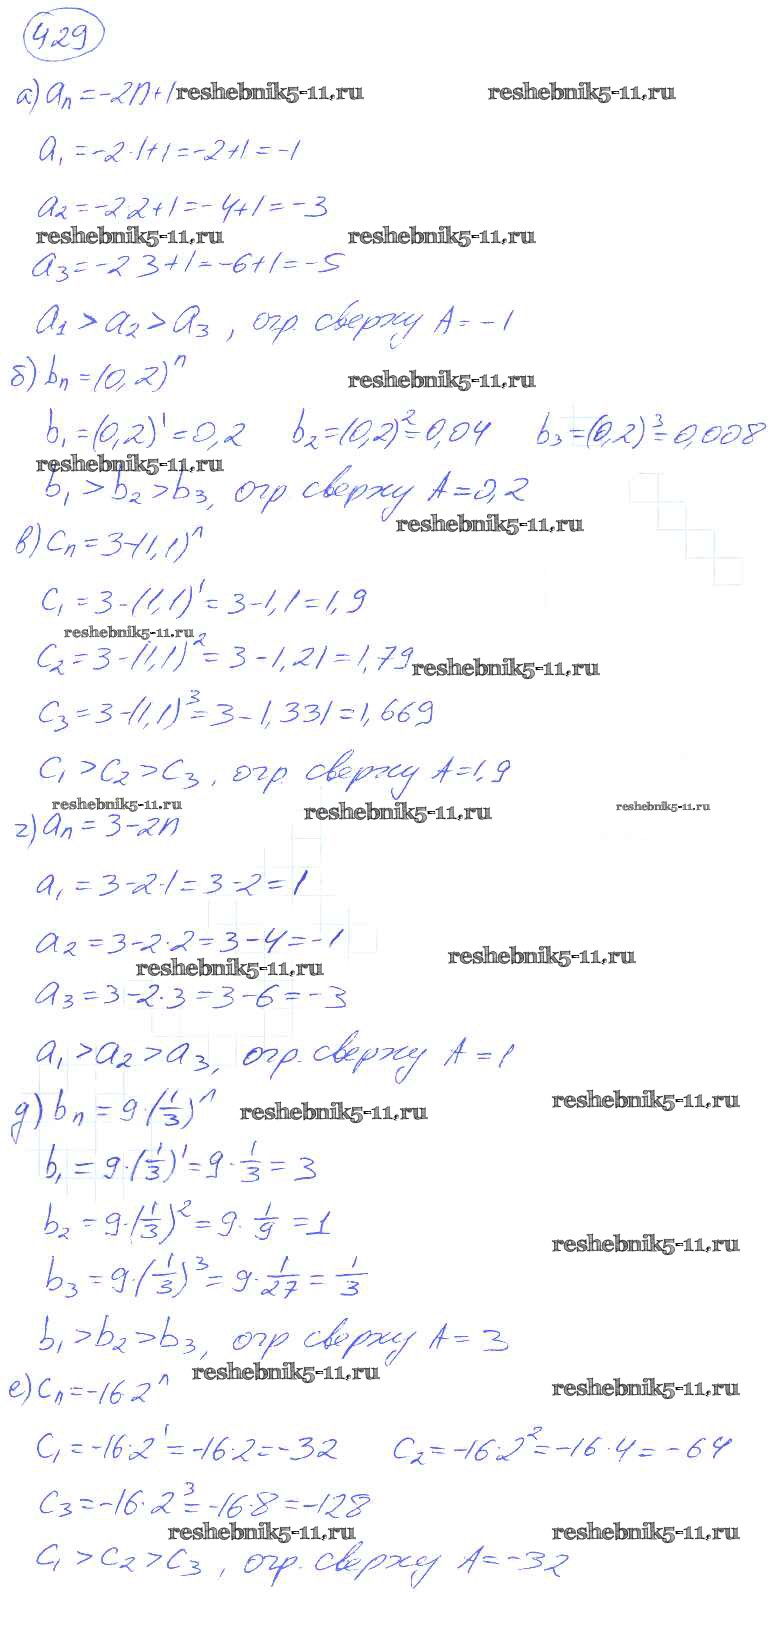 429
а) aₙ = -2n+1 reshebnik5-11.ru reshebnik5-11.ru
a₁ = -2·1+1 = -2+1 = -1
a₂ = -2·2+1 = -4+1 = -3
reshebnik5-11.ru reshebnik5-11.ru
a₃ = -2·3+1 = -6+1 = -5
a₁ > a₂ > a₃, огр. сверху A = -1
б) bₙ = (0,2)ⁿ reshebnik5-11.ru
b₁ = (0,2)¹ = 0,2 b₂ = (0,2)² = 0,04 b₃ = (0,2)³ = 0,008
reshebnik5-11.ru
b₁ > b₂ > b₃, огр сверху A = 0,2
reshebnik5-11.ru
в) cₙ = 3-(1,1)ⁿ
c₁ = 3-(1,1)¹ = 3-1,1 = 1,9
reshebnik5-11.ru
c₂ = 3-(1,1)² = 3-1,21 = 1,79 reshebnik5-11.ru
c₃ = 3-(1,1)³ = 3-1,331 = 1,669
c₁ > c₂ > c₃, огр. сверху A = 1,9
reshebnik5-11.ru reshebnik5-11.ru reshebnik5-11.ru
г) aₙ = 3-2n
a₁ = 3-2·1 = 3-2 = 1
a₂ = 3-2·2 = 3-4 = -1
reshebnik5-11.ru reshebnik5-11.ru
a₃ = 3-2·3 = 3-6 = -3
a₁ > a₂ > a₃, огр. сверху A = 1
д) bₙ = 9·(1/3)ⁿ reshebnik5-11.ru reshebnik5-11.ru
b₁ = 9·(1/3)¹ = 9·1/3 = 3
b₂ = 9·(1/3)² = 9·1/9 = 1
reshebnik5-11.ru
b₃ = 9·(1/3)³ = 9·1/27 = 1/3
b₁ > b₂ > b₃, огр сверху A = 3
reshebnik5-11.ru
е) cₙ = -16·2ⁿ reshebnik5-11.ru
c₁ = -16·2¹ = -16·2 = -32 c₂ = -16·2² = -16·4 = -64
c₃ = -16·2³ = -16·8 = -128
reshebnik5-11.ru reshebnik5-11.ru
c₁ > c₂ > c₃, огр. сверху A = -32